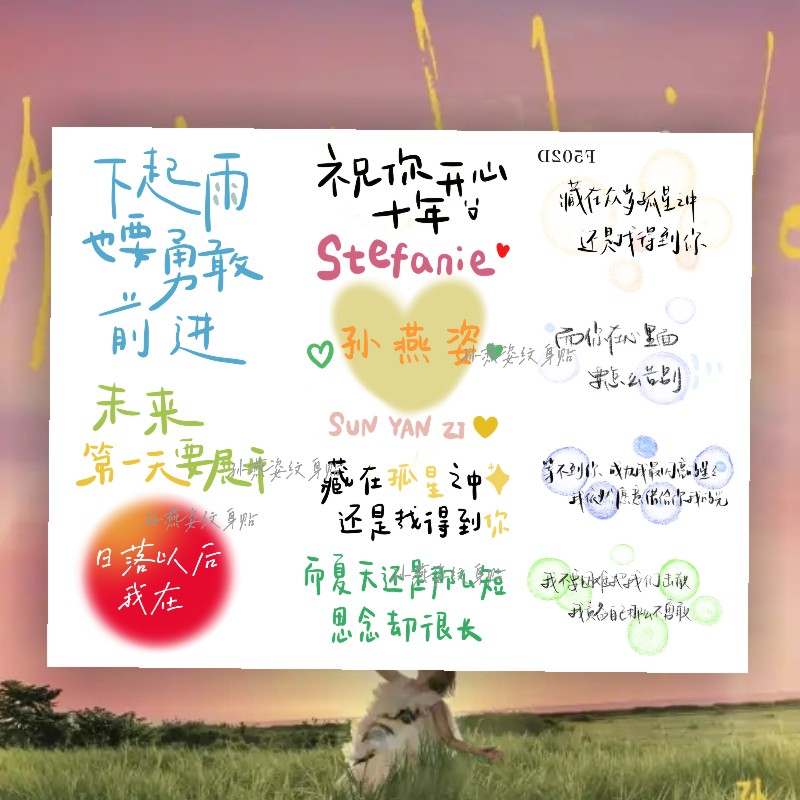 下起雨
也要勇敢
前进
未来
第一天要展开
日落以后
我在
祝你开心
十年
Stefanie
孙燕姿
SUN YAN ZI
藏在孤星之中
还是找得到你
而夏天还是那么短
思念却很长
F502D
藏在众多孤星之中
还是找得到你
而你在心里面
要怎么告别
等不到你 成为我最闪亮的星星
我依然愿意借给你我的光
我不要困难把我们击散
我责备自己那么不勇敢
孙燕姿纹身贴
孙燕姿纹身贴
孙燕姿纹身贴
孙燕姿纹身贴